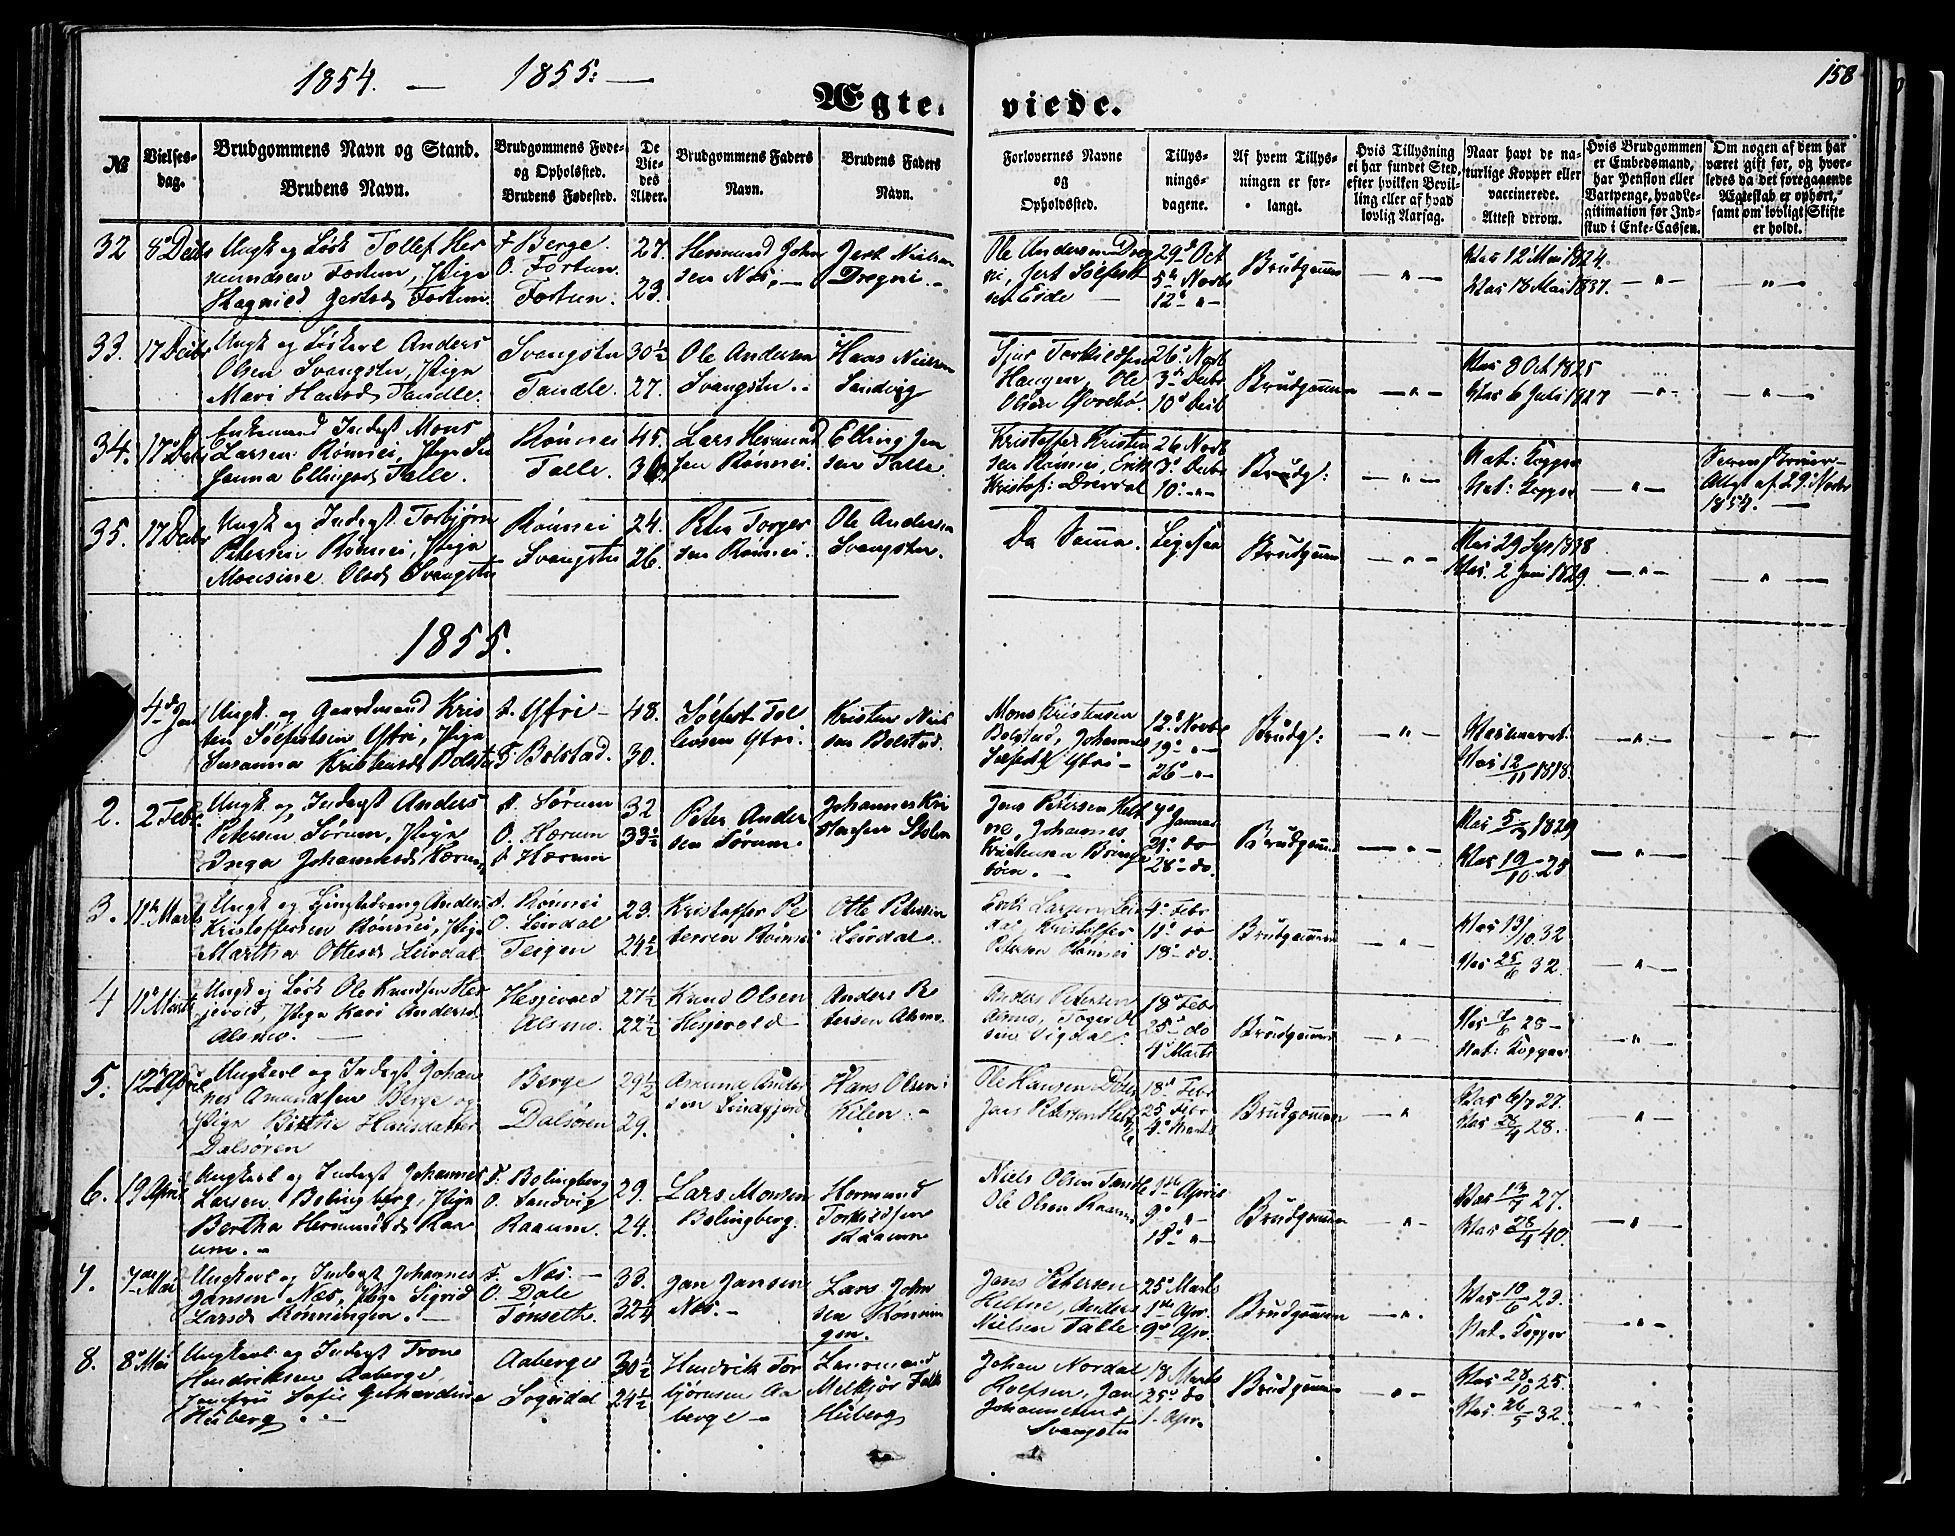 1854. — 1855: —
Ægteviede.
158
№
Vielsesdag.
Brudgommens Navn og Stand.
Brudens Navn.
Brudgommens Føde- og Opholsted.
Brudens Fødested.
De Viedes Alder.
Brudgommens Faders Navn.
Brudens Faders Navn.
Forlovernes Navne og Opholdssted.
Tillysningsdagene.
Af hvem Tillysningen er forlangt.
Hvis Tillysning ei har fundet Sted, efter hvilken Bevilling eller af hvad lovlig Aarsag.
Naar havt de naturlige Kopper eller vaccinerede. Attest derom.
Hvis Brudgommen er Embedsmand, har Pension eller Vartpenge, hvad Legitimation for Indskud i Enke-Cassen.
Om nogen af dem har været gift før, og hvorledes da det foregaaende Ægteskab er ophørt, samt om lovligt Skifte er holdt.
32
8de Decbr
Ungk og Løsk Tollef Her
mundsen Fortun, Pige
Ragnild Gertsd Fortun.
F Berge.
O. Fortun.
Fortun.
27.
23.
Hermund John
sen Næs, —
Jert Nielsen
Dregni. —
Ole Andersen Dreg
ni, Jert Sølfest
sen Eide —
29de Oct
5te Novbr
12te "
Brudgommen
— " —
Vac 12 Mai 1824.
Vac 13 Mai 1837.
— " —
— " —
33.
17 Decbr
Ungk og Løskarl Anders
Olsen Svangstu, Pige
Mari Hansd Tandle.
Svangstu
Tandle.
30½
27.
Ole Andersen
Svangstu..
Hans Nielsen
Sandvig
Sjur Torkildsen
Haugen, Ole
Olsen Øvrebø.
26de Novb
3de Decbr
10de Decb
Brudgommen
— " —
Vac 8 Oct 1825
Vac 6 Juli 1827
— " —
— " —
34.
17 Decbr
Enkemand Inderst Mons
Larsen Rønnei, Pige Su
sanna Ellingsd Talle.
Rønnei
Talle.
45.
Lars Hermund
sen Rønnei.
Elling Jen
sen Talle.
Kristoffer Kristen
sen Rønnei, Erik
Kristof: Drevdal
26 Novb
3de Decbr
10de "
Brudg:
— " —
Nat: Kopper
Nat: Kopper
— " —
Attest af 29 Novbr
1854. —
35.
17 Decbr
Ungk og Inderst Torbjørn
Petersen Rønnei, Pige
Monsine Olsd Svangstu
Rønnei
Svangstu
24.
26.
Peter Torger
sen Rønnei.
Ole Andersen
Svangstu.
De Samme.
Ligesaa
Brudgommen
— " —
Vac 29 Sep 1838
Vac. 2 Juni 1829.
— " —
— " —
1855.
4de Jan
Ungk. og Gaardmand Kris
ten Sølfestsen Yttri, Pige
Susanna Kristensd Bolstad
F. Yttri —
F. Bolstad.
48.
30.
Sølfest Tol
levsen Yttri.
Kristen Niel
sen Bolstad.
Mons Kristensen
Bolstad, Johannes
Sølfests: Yttri —
12te Novbr
19de "
26de "
Brudg:
— " —
Vaccineret.
Vac 12/11 1818.
— " —
— " —
2.
2 Febr.
Ungk. og Inderst Anders
Petersen Sørum, Pige
Inga Johannesd Kærum
F. Sørum
O. Hærum
F. Hærum
32
33½
Peter Ander
sen Sørum.
Johannes Kri
stensen Stolen
Jens Petersen Helt
ne, Johannes
Kristensen Bringe
søen. —
7de Januar
21de do
28de do.
Brudgommen
— " —
Vac 5/9 1829
Vac 19/10 25
— " —
3.
11te Marts
Ungk og Anders
Kristoffersen Rønnei, Pige
Martha Ottesd Leirdal.
F. Rønnei
O. Leirdal
Teigen
23.
24½
Kristoffer Pe
tersen Rønnei
Otte Petersen
Leirdal.
Erik Larsen Leir
dal, Kristoffer
Petersen Rønnei
4de Febr
11te do
18de do.
Brudgommen
— " —
Vac 13/10 32
Vac 25/6 32.
— " —
4
11te Marts
Ungk og Løsk Ole Knudsen Hes
jevold, Pige Kari Andersd
Alsmo. —
Hesjevold
Alsmo.
27½
22½
Knud Olsen
Hesjevold
Anders Pe
tersen Alsmo.
Anders Petersen
Alsmo, Torger Ol
sen Vigdal.
18de Febr
25de do
4de Marts
Brudgommen
— " —
Vac 7/6 28 —
Nat: Kopper
— " —
5.
12te April
Ungkarl og Inderst Johan
nes Amundsen Berge og
Pige Birthe Hansdatter
Dalsøren
Berge
Dalsøren
29½
29.
Amund Ander
sen Lindgjerd
Hans Olsen
Kilen. —
Ole Hansen
Jens Petersen Helt
ne
18de Febr
25 Febr
4de Marts
Brudgommen
— "
Vac 6/7 27.
Vac 28/9 28.
— " —
6.
19 April
Ungkarl og Inderst Johannes
Larsen Bolingberg, Pige
Bertha Hermundsd Raa
um. —
F. Bolingberg
O. Sandvig
Raaum.
29.
24.
Lars Monsen
Bolingberg.
Hermund
Torkildsen
Raaum
Niels Olsen Tandle
Ole Olsen Raaum
1ste April
9de "
15de "
Brudgommen
— " —
Vac 13/7 27.
Vac 28/4 40.
— " —
7.
7de Mai
Ungkarl og Inderst Johannes
Jansen Næs, Pige Sigrid
Larsd Rønningen. —
F. Næs. —
O. Dale
Tønseth.
33.
32¼
Jan Jansen
Næs —
Lars John
sen Rønnin
gen.
Jens Petersen
Heltne, Anders
Nielsen Talle
25de Marts
1ste Apr.
9de Apr.
Brudgommen
— " —
Vac 10/6 23.
Nat. Kopper
— " —
8.
8de Mai
Ungkarl og Inderst Trone
Hendriksen Aaberge,
Jomfru Sofie Gerhardine
Huberg. —
Aaberge
Sogndal
30½
24½
Hendrik Tor
bjørnsen Aa
berge —
Lensmand
Melkjor Falk
Huberg
Johan Nordal
Rolfsen, Jan
Johannesen
Svangstu
18 Marts
25de do
1. Apr.
Brudgommen
— " —
Vac 28/10 25.
Vac. 26/5 32.
— " —